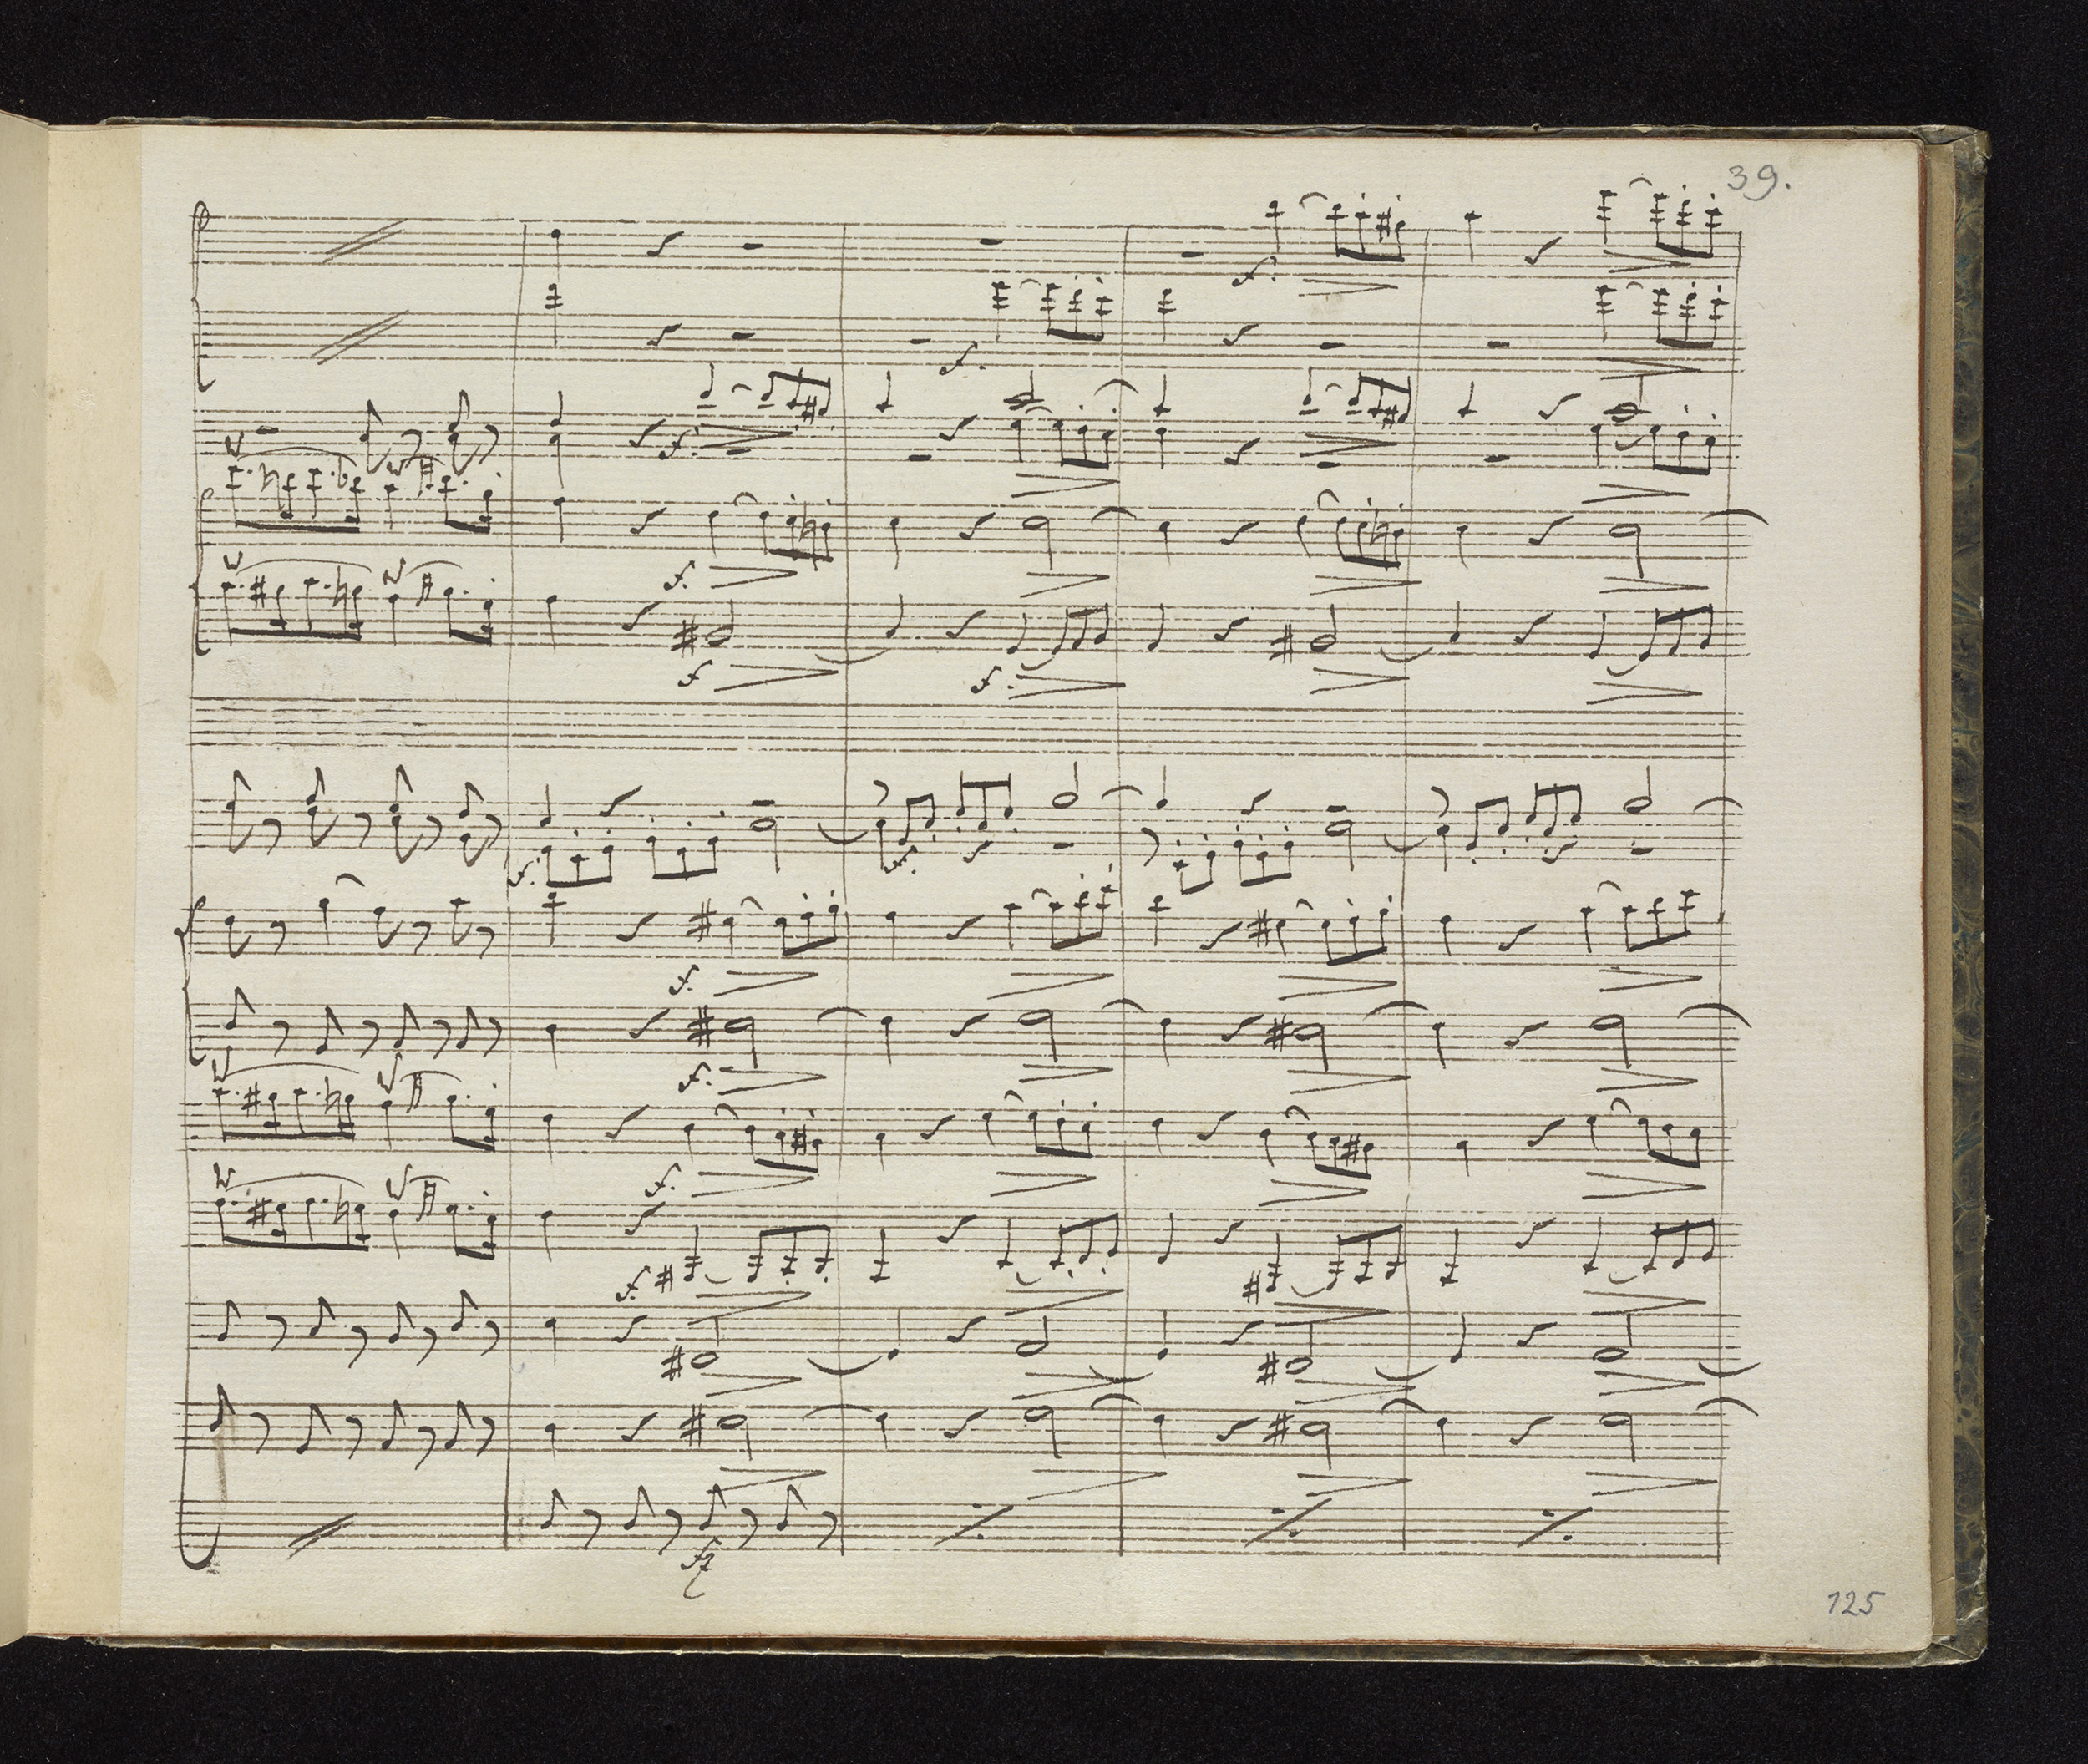 39.
f.
f.
f.
f.
f
f.
f.
f.
f.
f.
f.
f.
fz
125